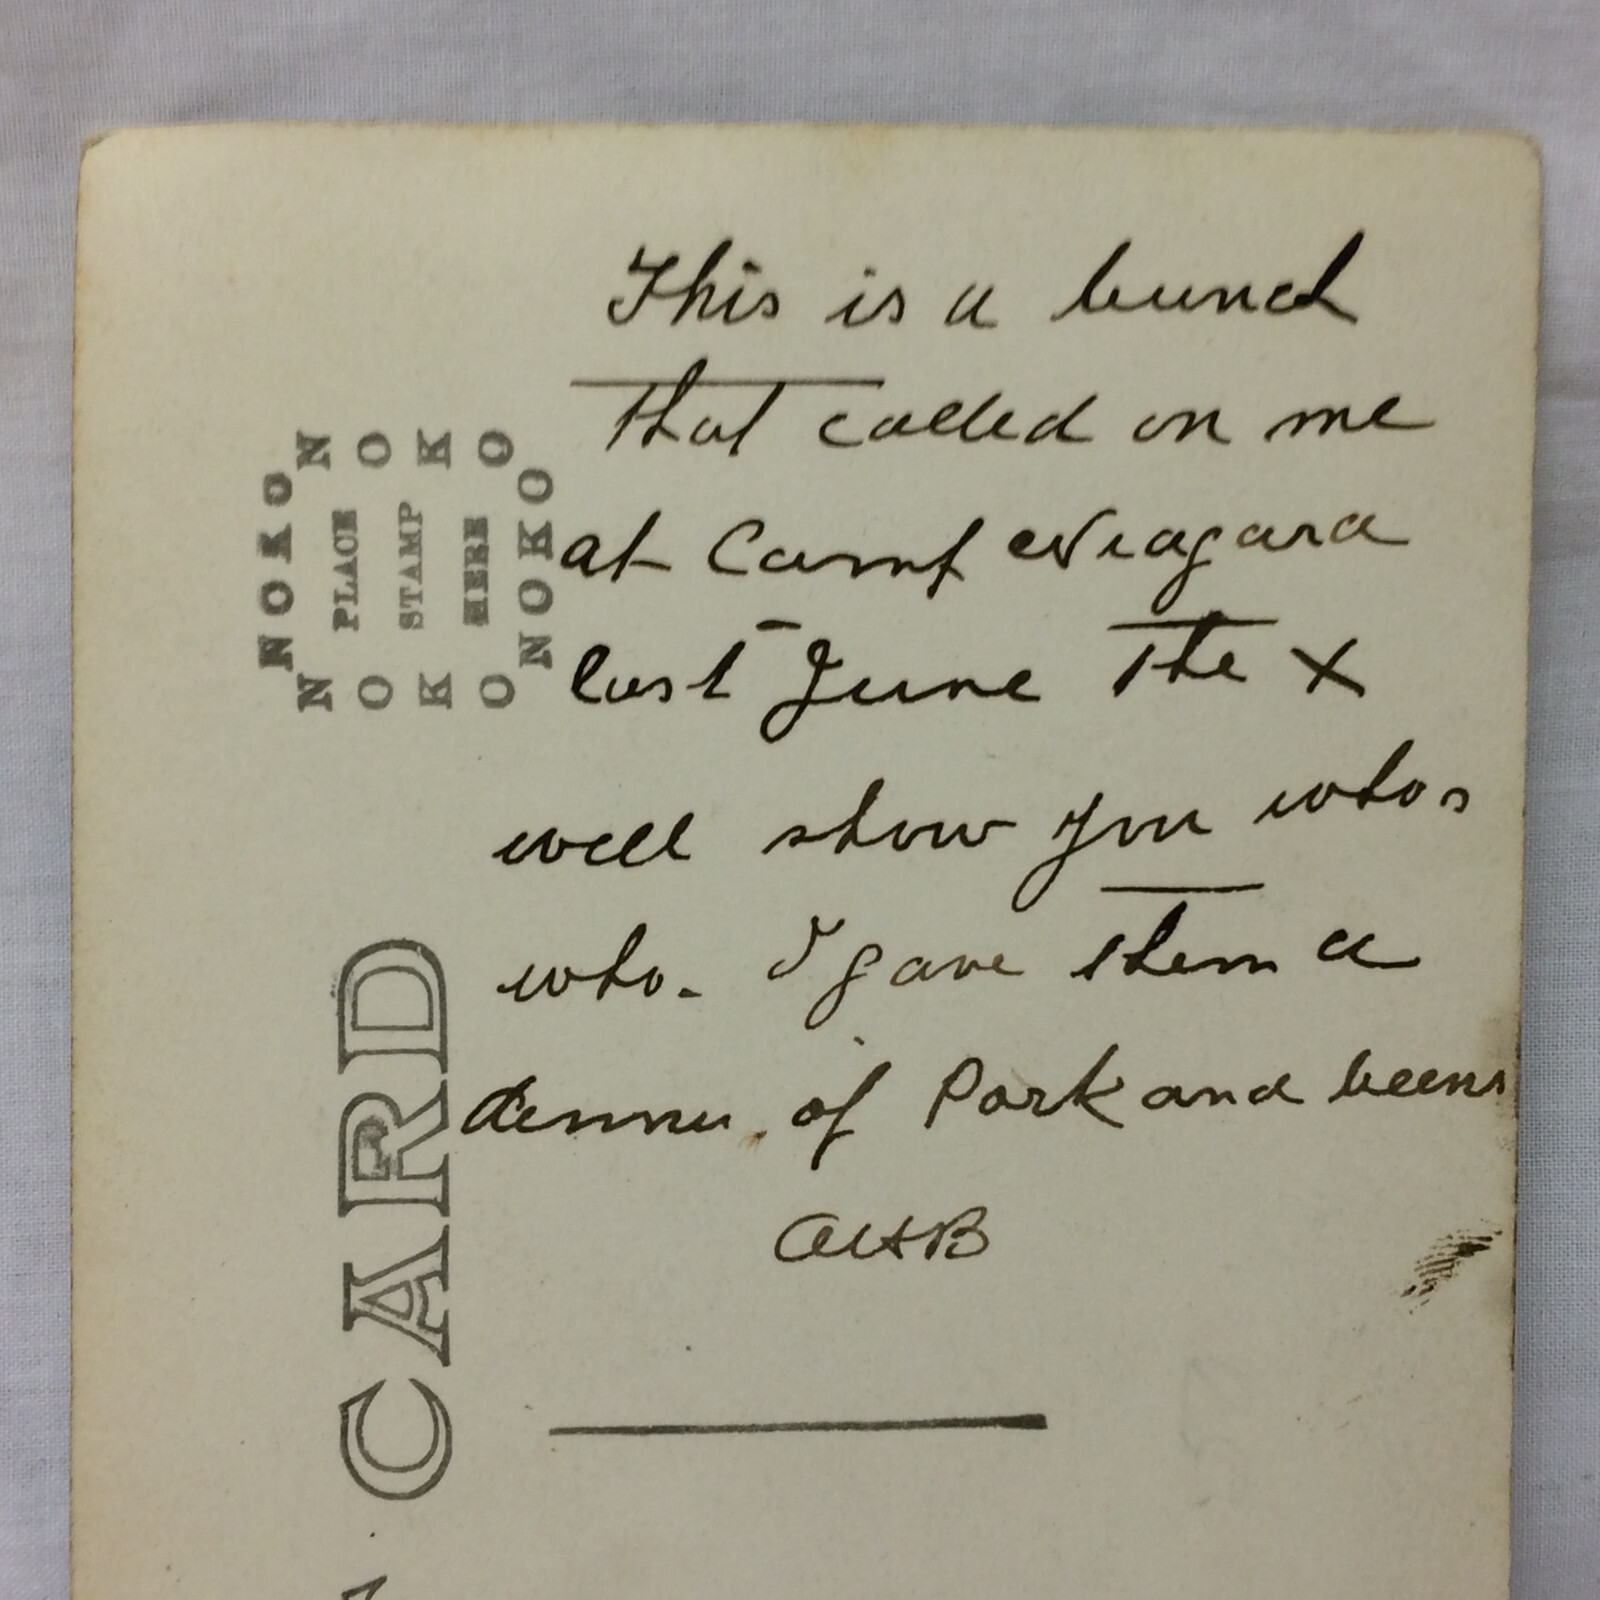 This is a bunch
that called on me
at Camp Niagara
last June The X
will show you whos
who. I gave them a
dinner of Pork and beens
AHB
NOKO
PLACE
STAMP
HERE
NOKO
NOKO
NOKO
CARD